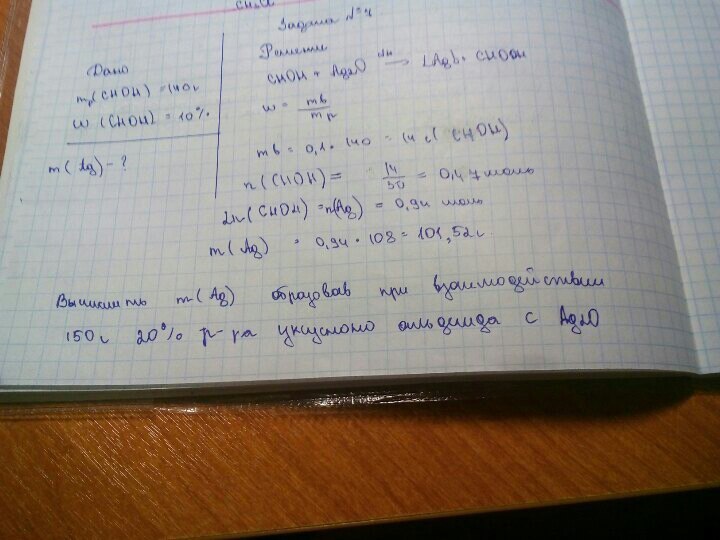 Задача №4
Дано
Решение
m р(CHOH) = 140г
W (CHOH) = 10%
m(Ag) - ?
CHOH + Ag2O → 2Ag↓ + CHOOH
W = mв / mр
mв = 0,1 • 140 = 14 г( CHOH)
n(CHOH) = 14/30 = 0,47 моль
2n(CHOH) = n(Ag) = 0,94 моль
m(Ag) = 0,94 • 108 = 101,52г.
Вычислить m(Ag) образовав при взаимодействии
150г 20% р-ра уксусного альдеида с Ag2O